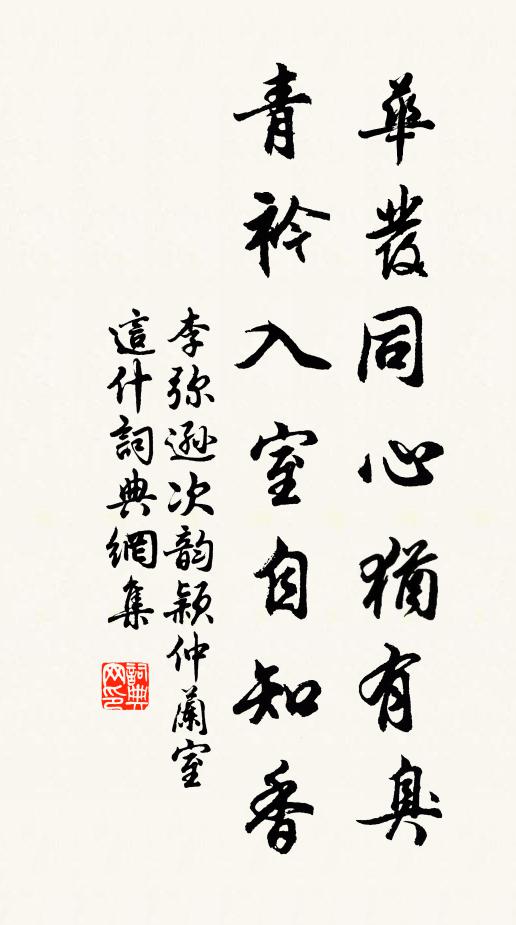 華發同心猶有臭
青衿入室自知香
李弥遜次韵穎仲蘭室
這什詞典網集
詞典網印